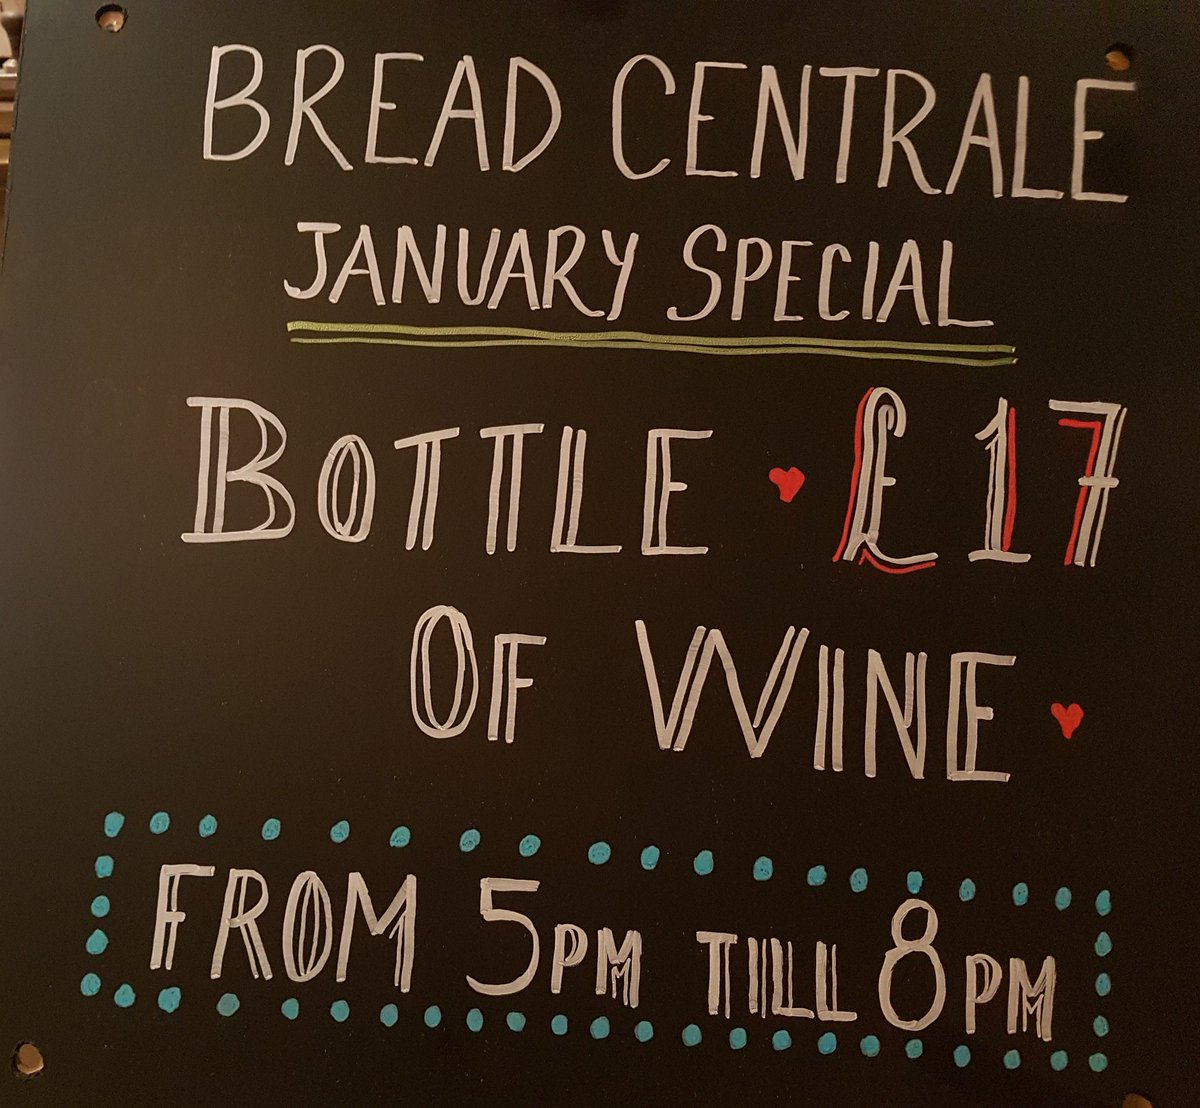 BREAD CENTRALE
JANUARY SPECIAL
BOTTLE £17
OF WINE
FROM 5PM TILL 8PM